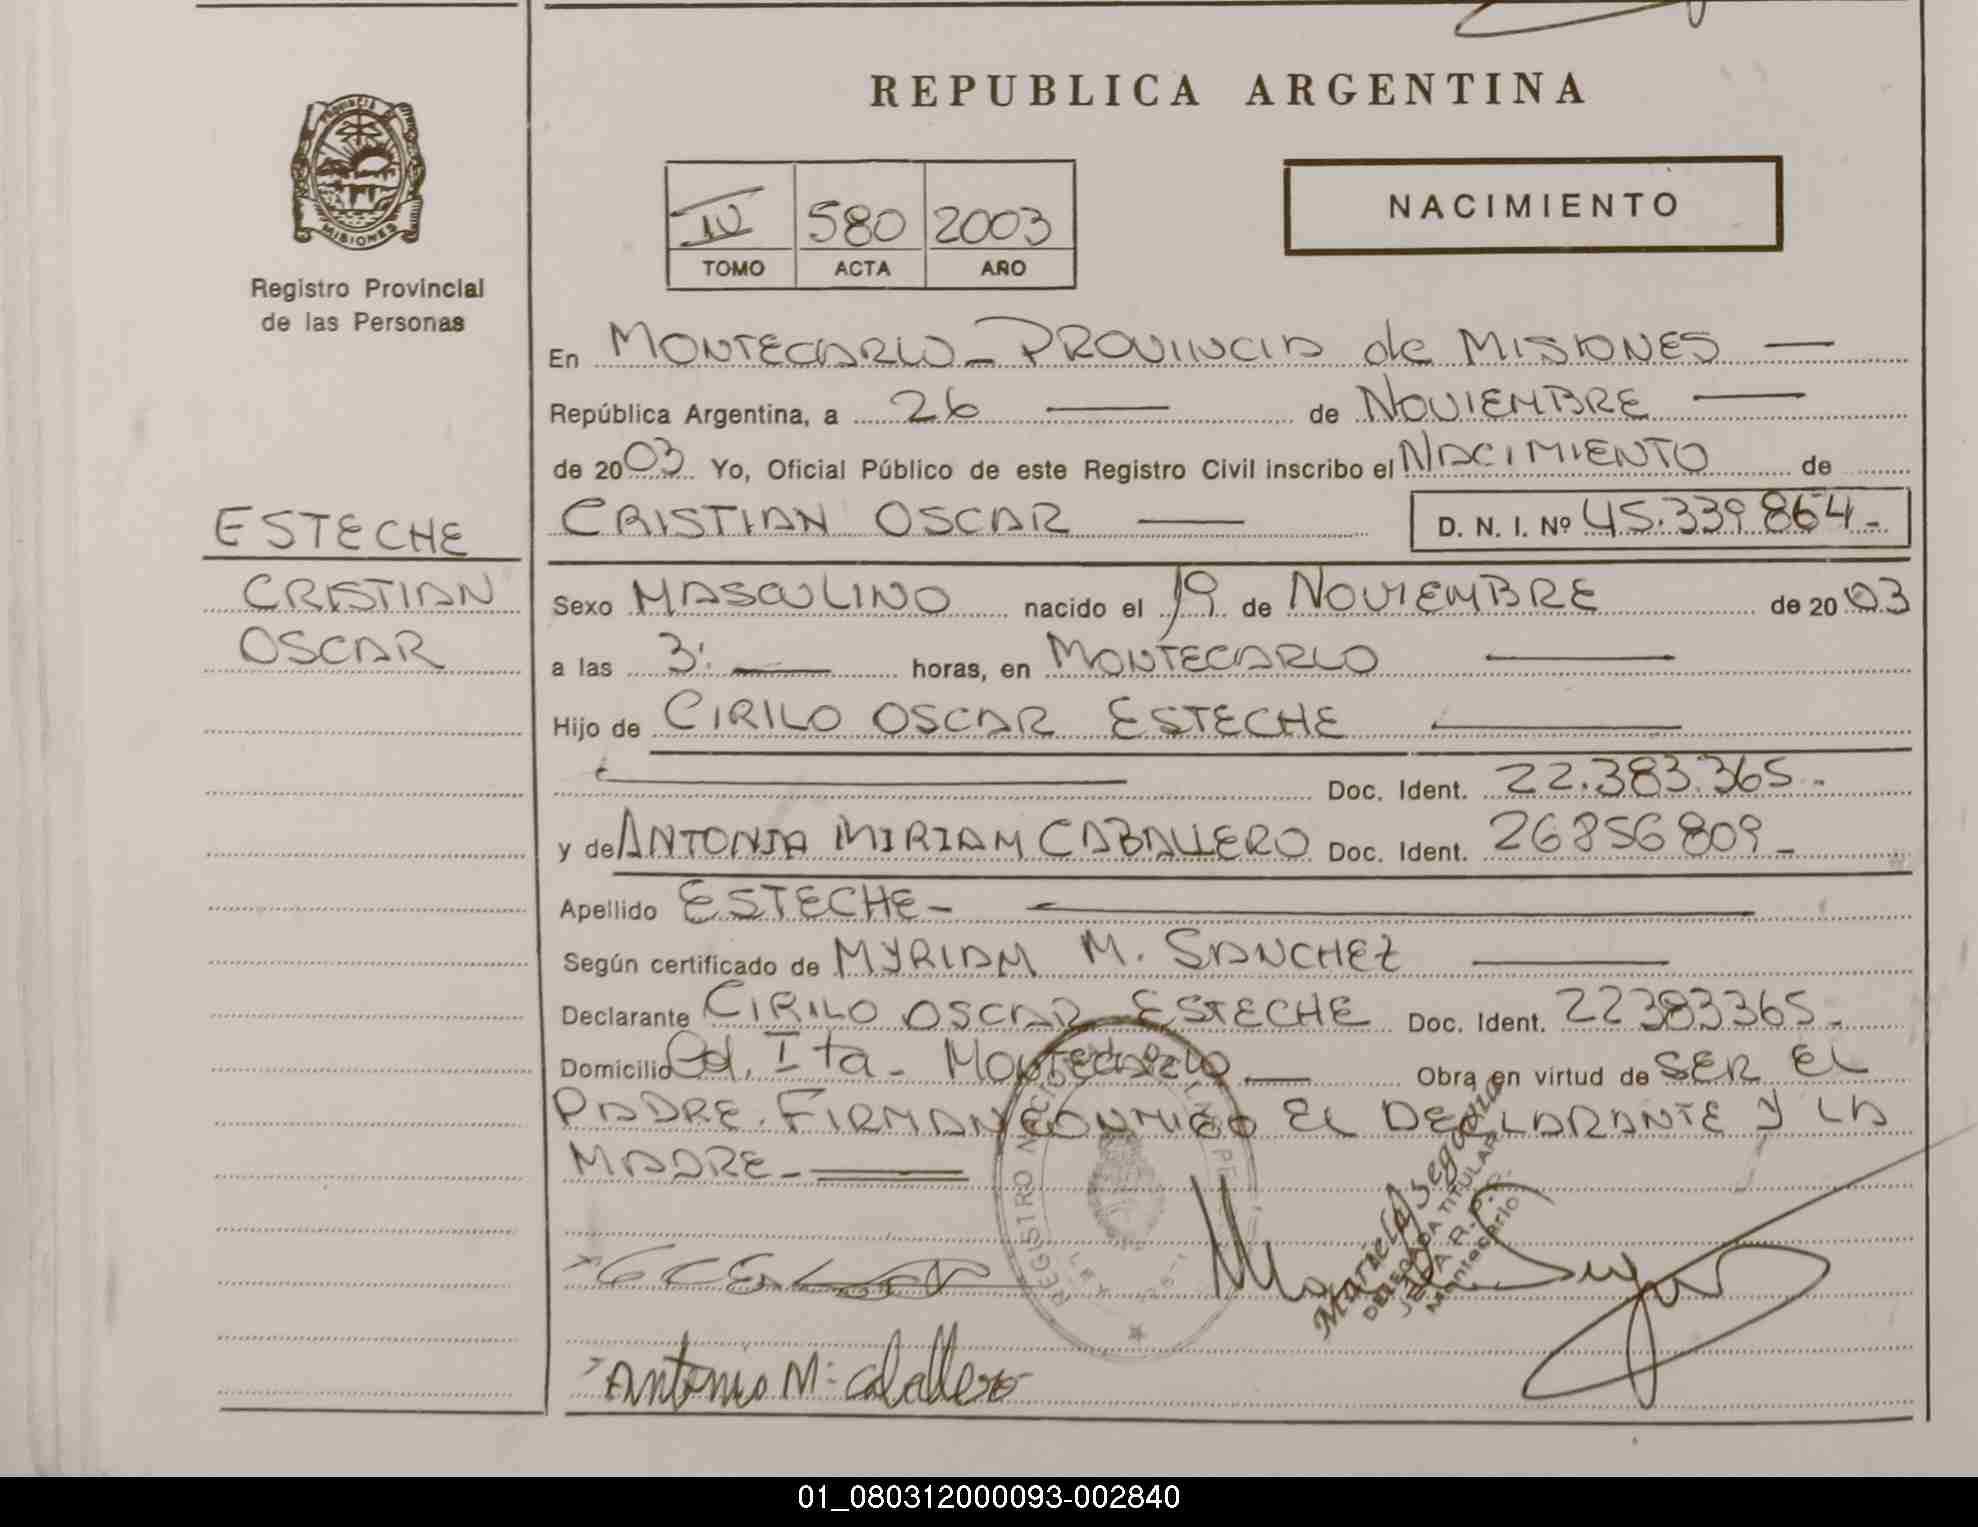 REPUBLICA ARGENTINA
PROVINCIA
MISIONES
Registro Provincial
de las Personas
IV 580 2003
TOMO ACTA AÑO
NACIMIENTO
En MONTECARLO - PROVINCIA de MISIONES
República Argentina, a 26 de NOVIEMBRE
de 2003 Yo, Oficial Público de este Registro Civil inscribo el NACIMIENTO de
CRISTIAN OSCAR D. N. I. Nº 45.339.864-
ESTECHE
CRISTIAN
OSCAR
Sexo MASCULINO nacido el 19 de NOVIEMBRE de 2003
a las 3: horas, en MONTECARLO
Hijo de CIRILO OSCAR ESTECHE
Doc. Ident. 22.383.365-
y de ANTONIA MIRIAM CABALLERO Doc. Ident. 26856809-
Apellido ESTECHE-
Según certificado de MYRIAM M. SANCHEZ
Declarante CIRILO OSCAR ESTECHE Doc. Ident. 22383365-
Domicilio Cd. Ita - Montecarlo Obra en virtud de SER EL
PADRE. FIRMAN CONMIGO EL DECLARANTE Y LA
MADRE-
REGISTRO
LEY
Mariela Segovia
DELEGADA TITULAR
JEFA R.P.P.
Montecarlo
Antonia M. Caballero
01_080312000093-002840